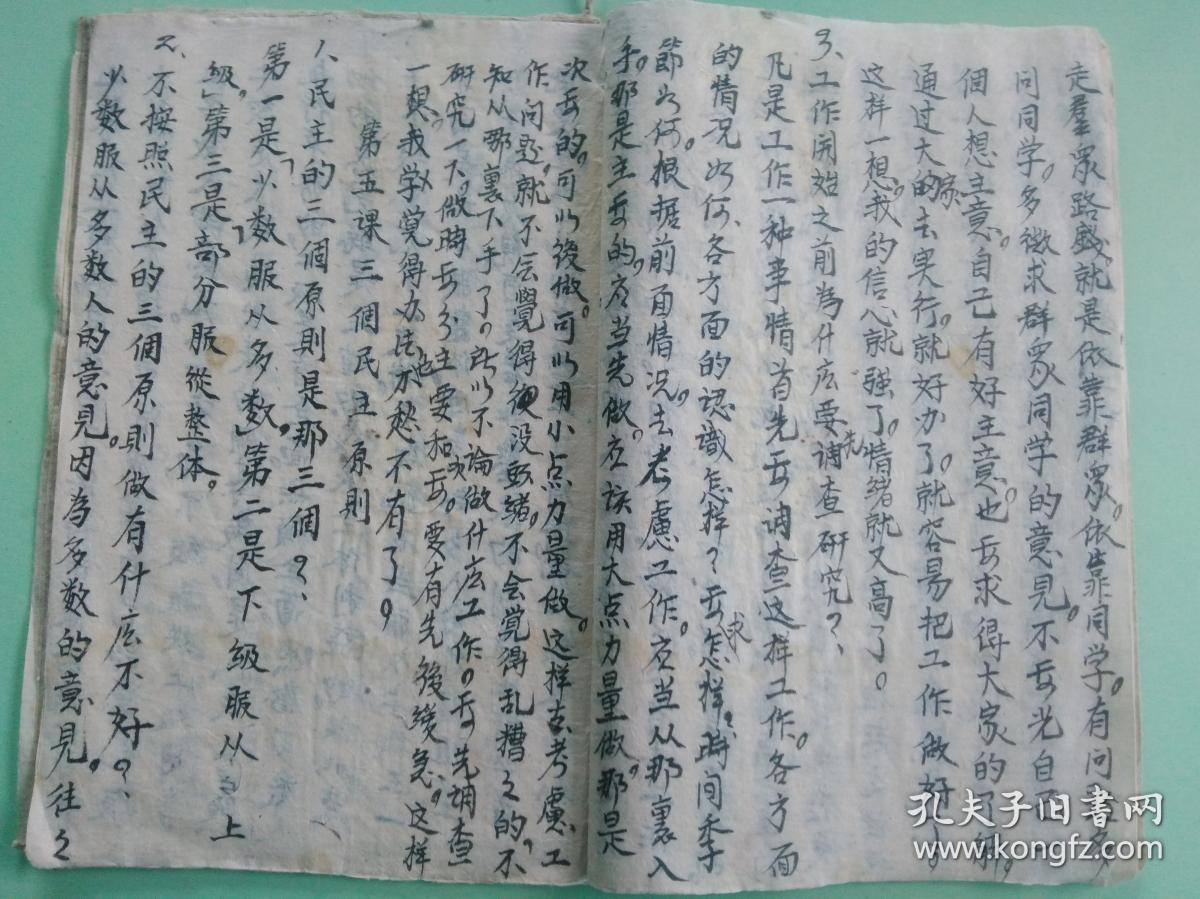 走羣眾路戲、就是依靠群眾。依靠同学。有问
问同学。多徵求群众同学的意見。不要光自己
個人想主意。自己有好主意。也要求得大家的了解。
通过大家的去实行。就好办了。就容易把工作做好。
这样一想。我的信心就强了。情绪就又高了。
3、工作開始之前為什広要先调查研究？
凡是工作一种事情首先要调查这样工作。各方面
的情况如何、各方面的認識怎样？要求怎样。时间季
節如何。根据前面情况。去考慮工作。应当从那裏入
手。那是主要的。应当先做。应该用大点力量做。那是
次要的。可以後做。可以用小点力量做。这样去考慮工
作问题。就不会覺得没頭绪。不会覚得乱糟之的。不
知从那裏下手了。所以不論做什広工作。要先调查
研究一下。做時要分主要和次要。要有先後缓急。这样
一想。我学覚得办法也不愁不有了。
第五课 三個民主原則
1、民主的三個原則是那三個？
第一是「少数服从多数」第二是下級服从上
級」第三是「部分服從整体。
2、不按照民主的三個原則做有什広不好？
少数服从多数人的意見。因為多数的意見。往之
孔夫子旧书网
www.kongfz.com